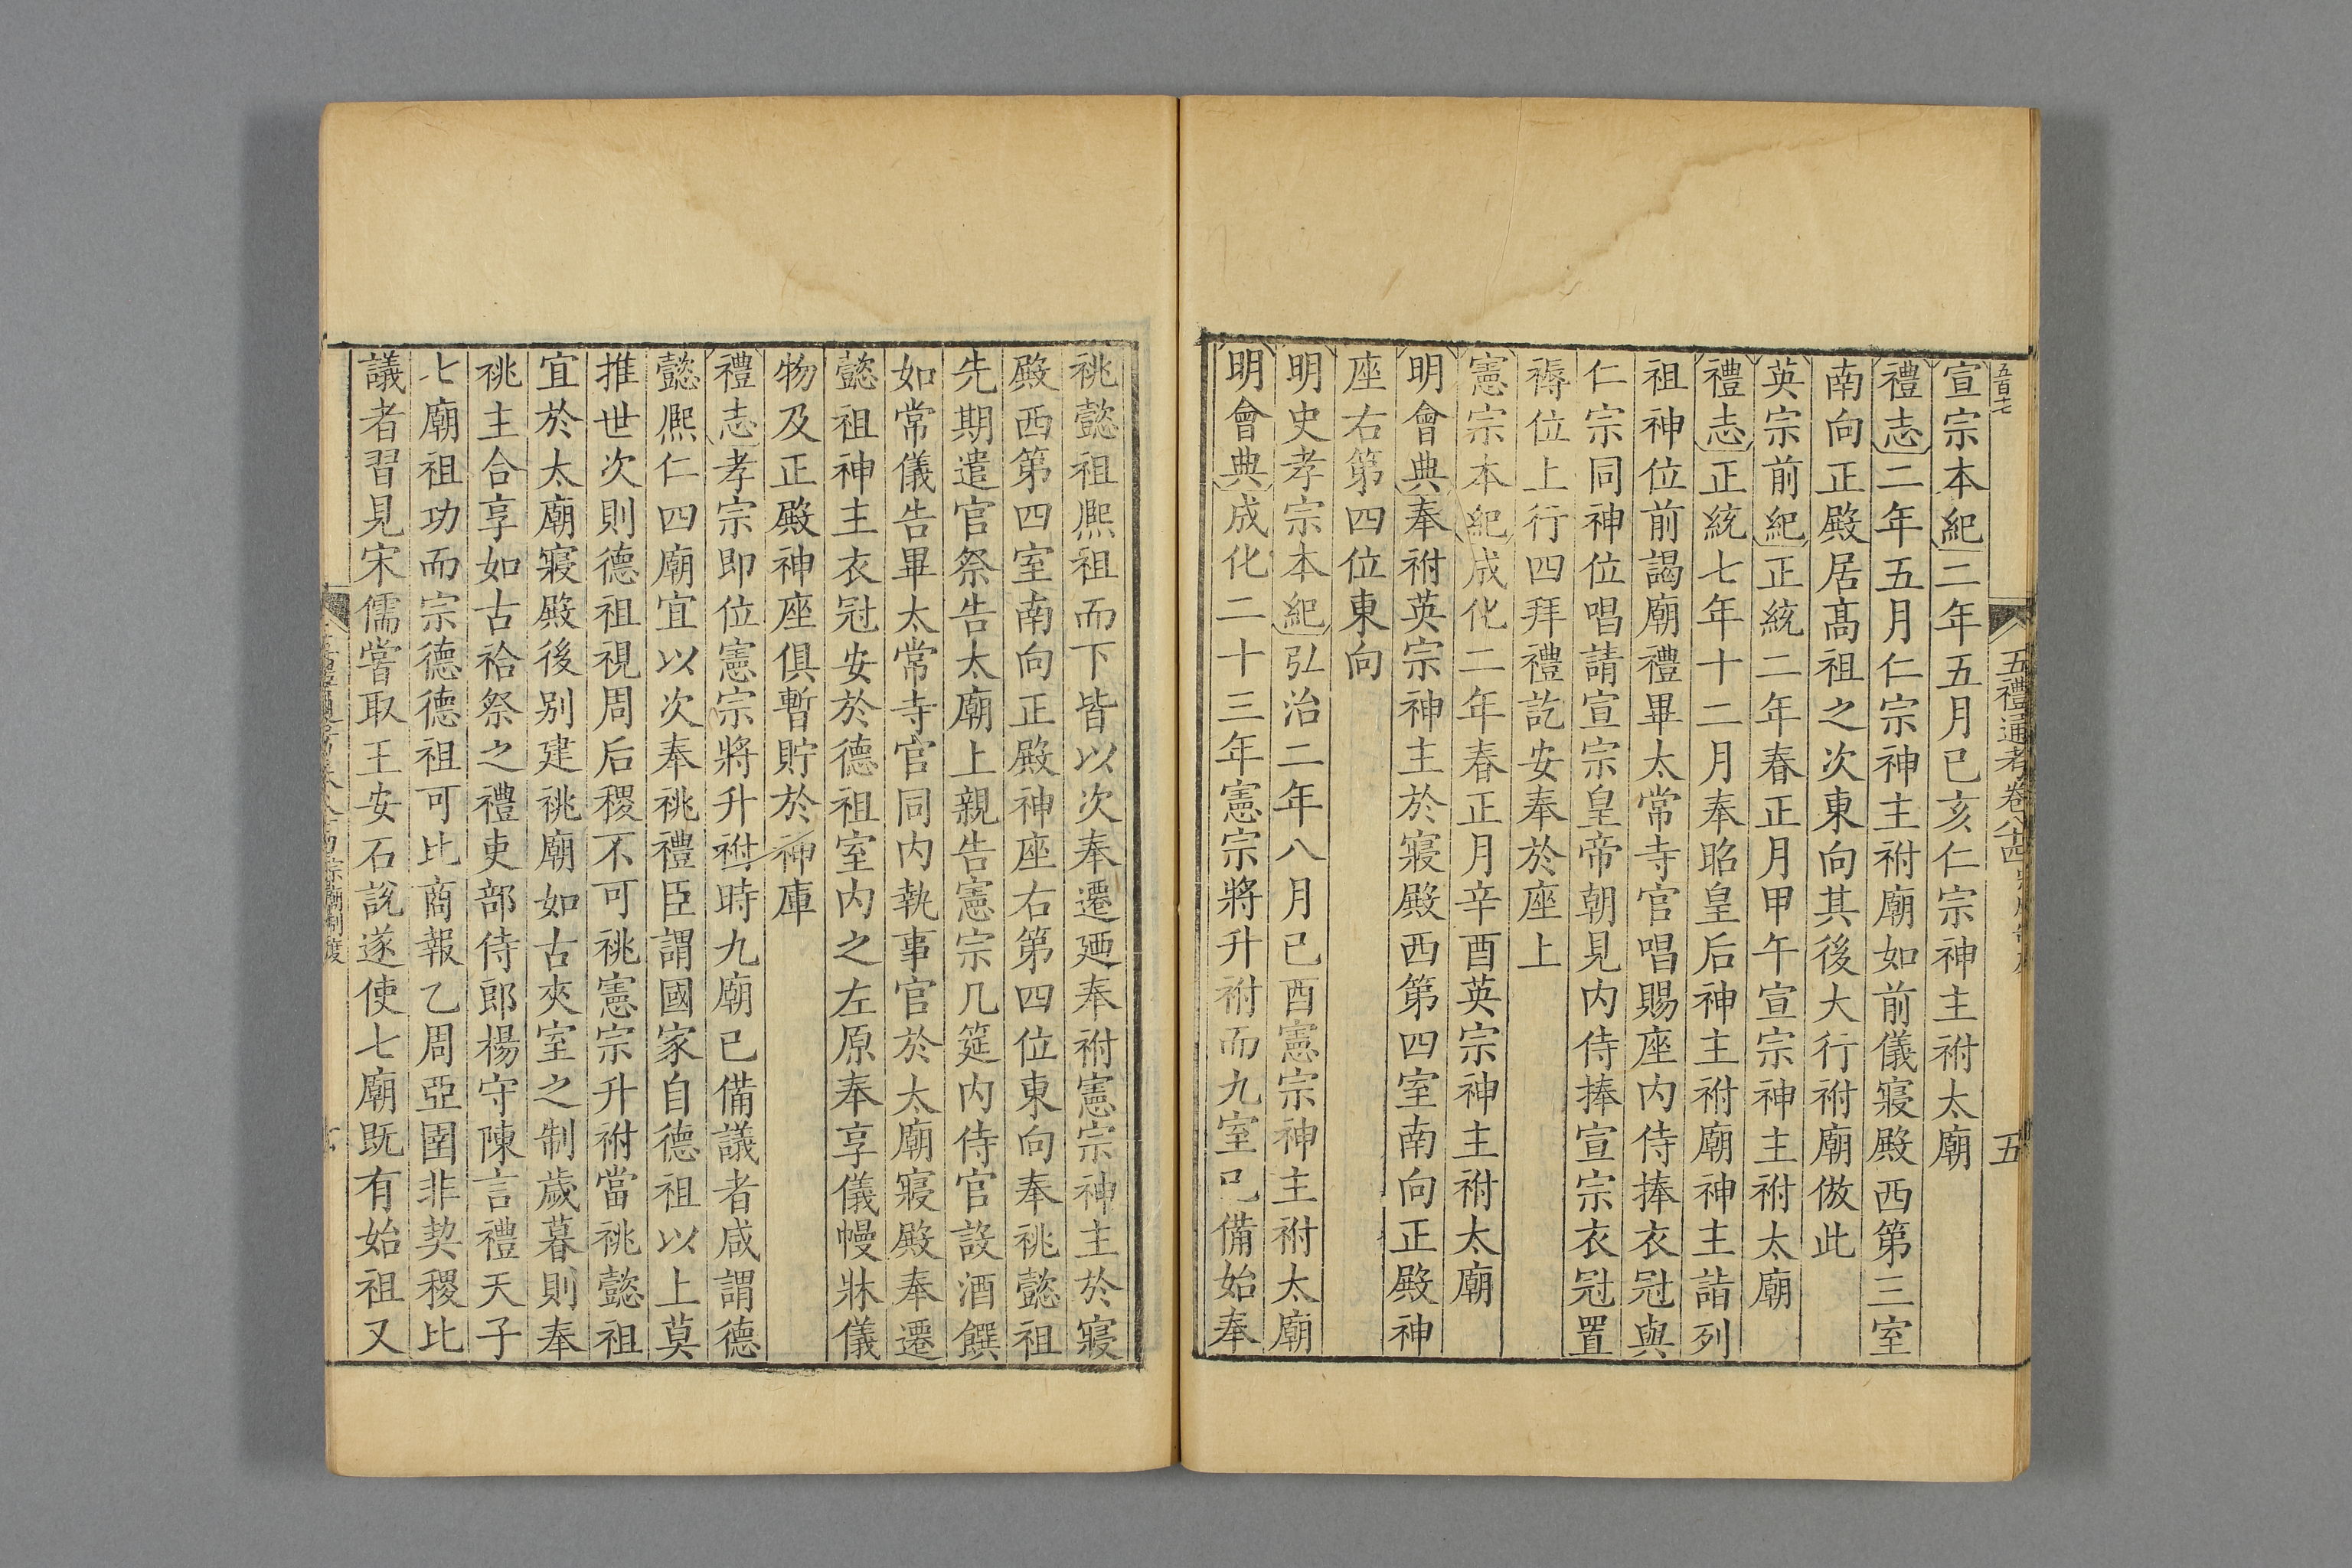 五百七
五禮通考卷八十四
五
宣宗本紀二年五月已亥仁宗神主祔太廟
禮志二年五月仁宗神主祔廟如前儀寢殿西第三室
南向正殿居髙祖之次東向其後大行祔廟倣此
英宗前紀正統二年春正月甲午宣宗神主祔太廟
禮志正統七年十二月奉昭皇后神主祔廟神主詣列
祖神位前謁廟禮畢太常寺官唱賜座内侍捧衣冠與
仁宗同神位唱請宣宗皇帝朝見内侍捧宣宗衣冠置
褥位上行四拜禮訖安奉於座上
憲宗本紀成化二年春正月辛酉英宗神主祔太廟
明會典奉祔英宗神主於寢殿西第四室南向正殿神
座右第四位東向
明史孝宗本紀弘治二年八月已酉憲宗神主祔太廟
明會典成化二十三年憲宗將升祔而九室已備始奉
祧懿祖熈祖而下皆以次奉遷廼奉祔憲宗神主於寢
殿西第四室南向正殿神座右第四位東向奉祧懿祖
先期遣官祭告太廟上親告憲宗几筵内侍官設酒饌
如常儀告畢太常寺官同内執事官於太廟寢殿奉遷
懿祖神主衣冠安於德祖室内之左原奉享儀幔牀儀
物及正殿神座俱暫貯於神庫
禮志孝宗即位憲宗將升祔時九廟已備議者咸謂德
懿熈仁四廟宜以次奉祧禮臣謂國家自德祖以上莫
推世次則德祖視周后稷不可祧憲宗升祔當祧懿祖
宜於太廟寢殿後别建祧廟如古夾室之制歲暮則奉
祧主合享如古祫祭之禮吏部侍郎楊守陳言禮天子
七廟祖功而宗德德祖可比商報乙周亞圉非契稷比
議者習見宋儒嘗取王安石說遂使七廟既有始祖又
宗廟制度